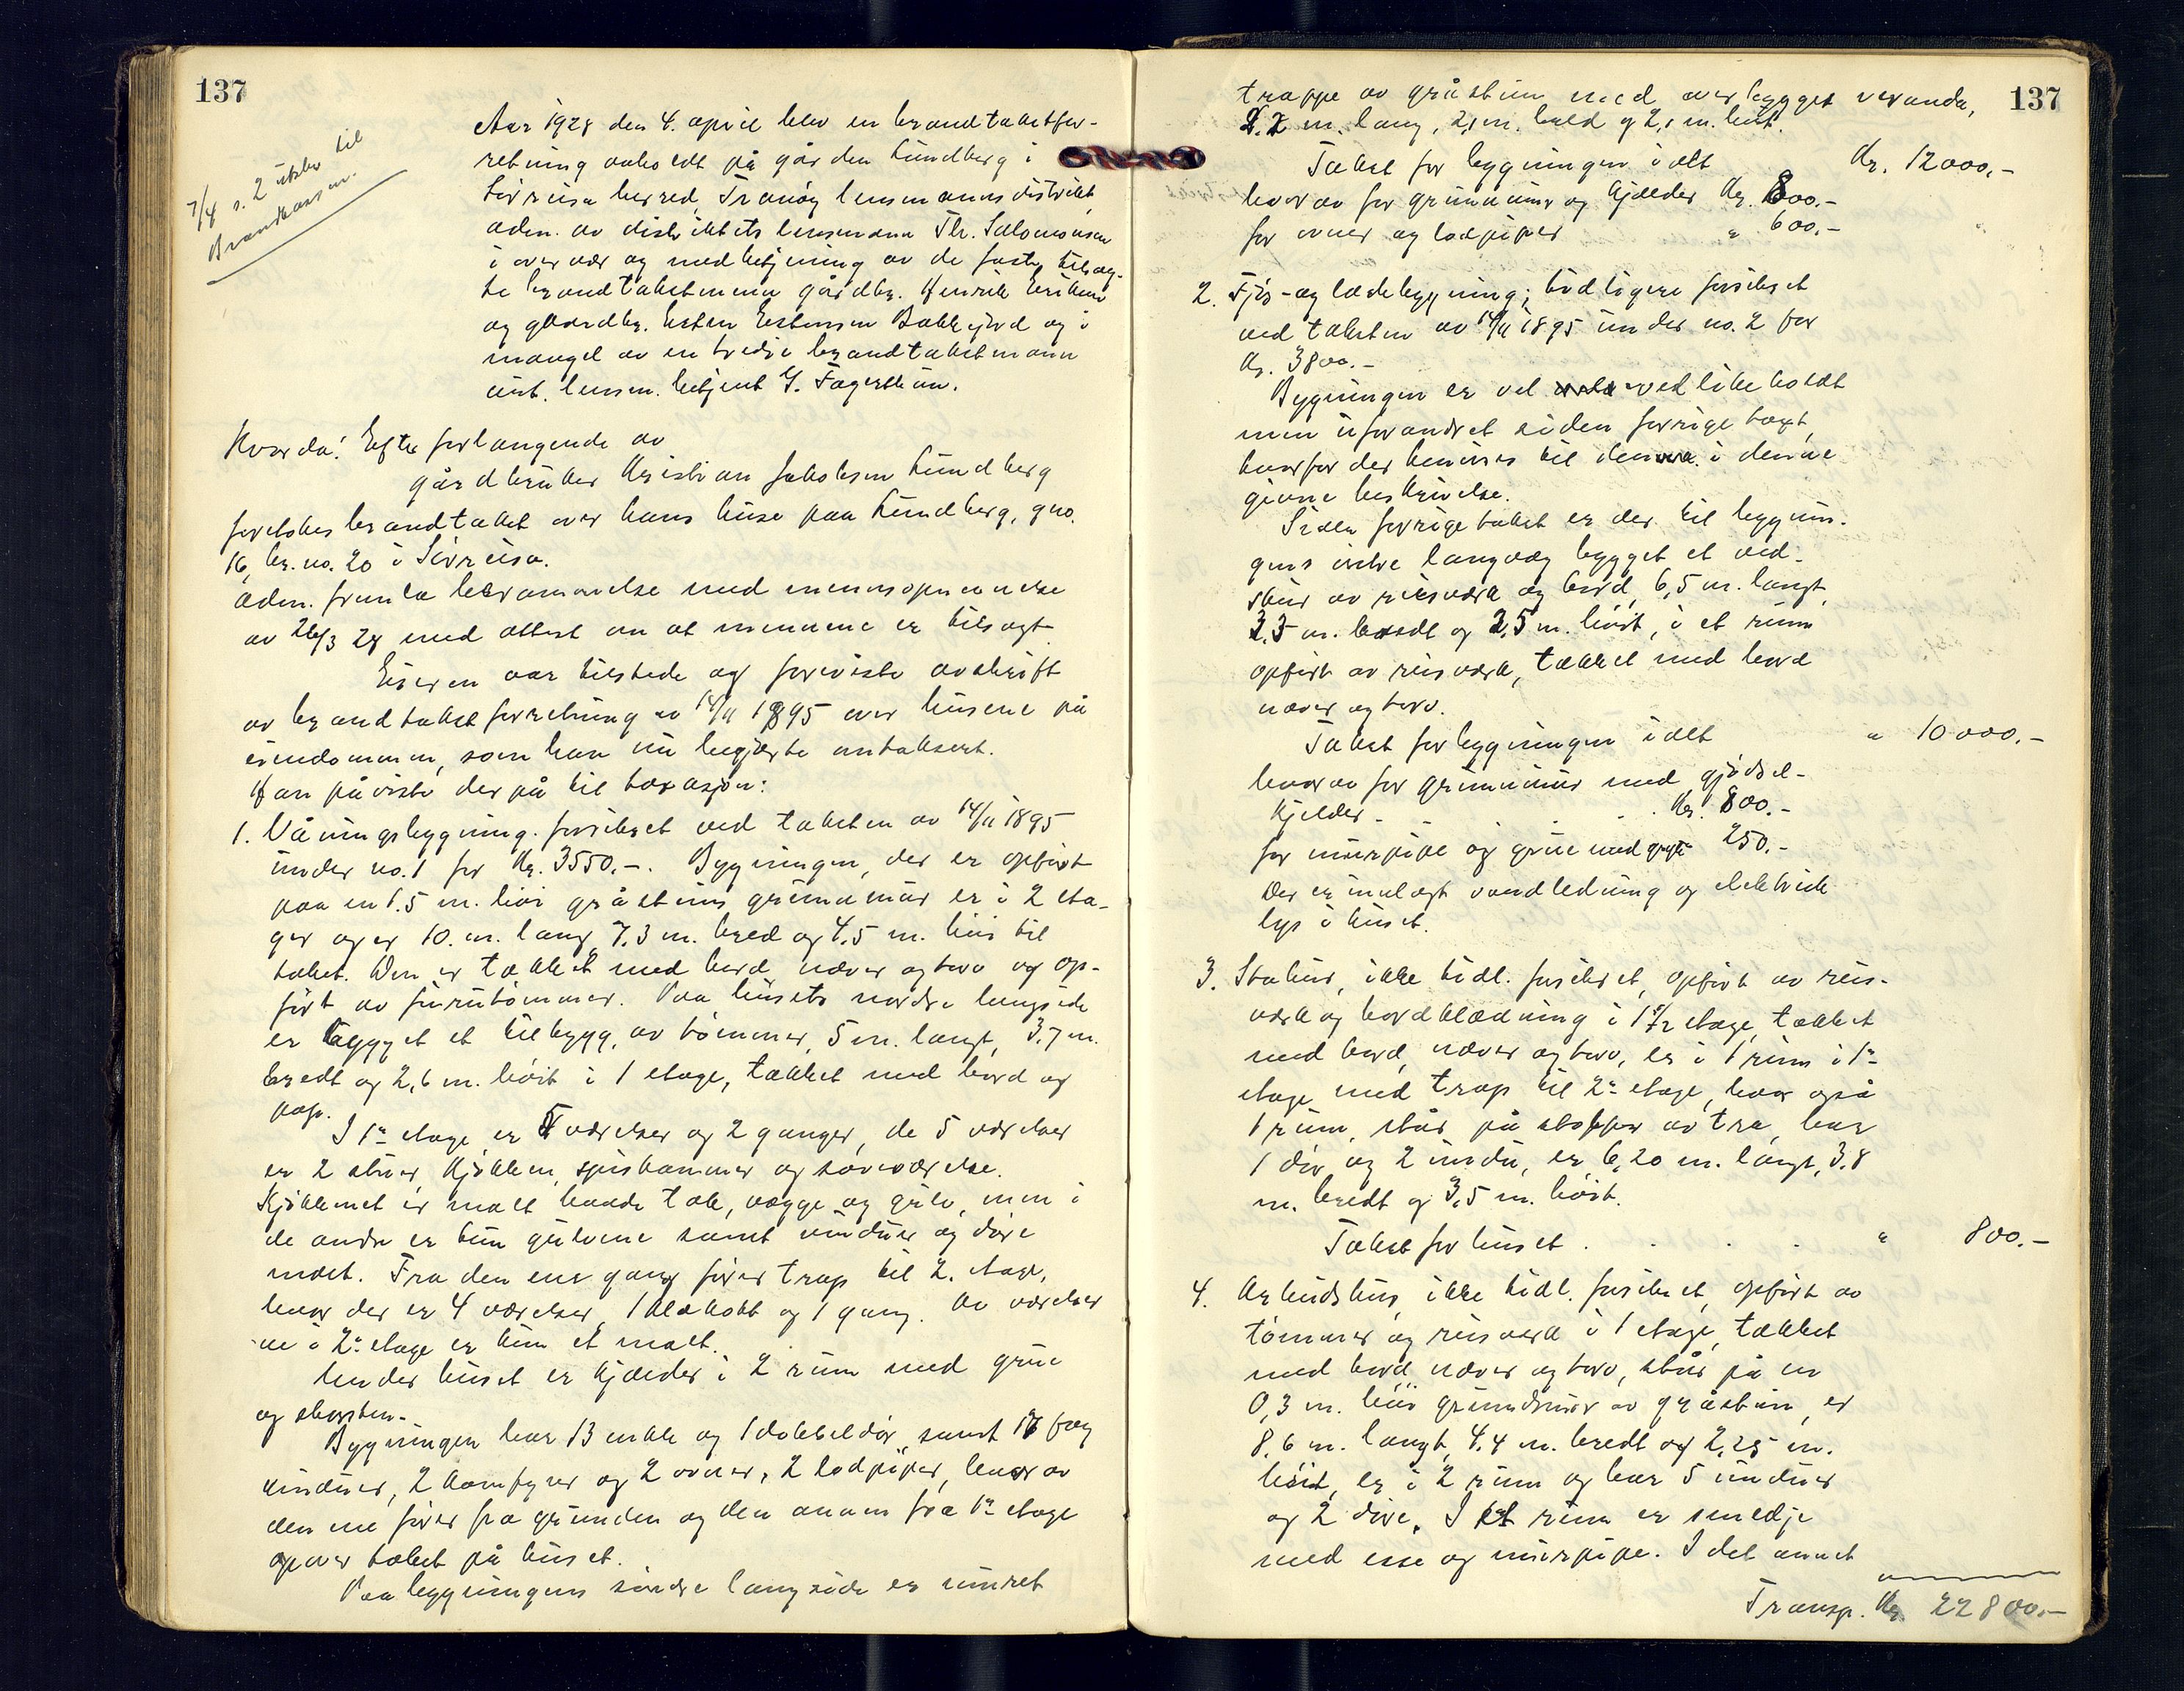 137
7/4 s. 2 utskr til
Brandkassen.
Aar 1928 den 4. april blev en brandtakstfor-
retning avholdt på gården Lundberg i
Sörreisa herred, Tranöy lensmannsdistrikt,
adm. av distriktets lensmann Th. Salomonsen
i overvær og medbetjening av de faste, tilsag-
te brandtakstmenn gårdbr. Henrik Eriksen
og gaardbr. Esten Estensen Bakkejord og i
mangel av en tredje brandtakstmann
lensm. betjent Fagertun.
Hvorda! Efter forlangende av
gårdbruker Kristian Jakobsen Lundberg
foretokes brandtakst over hans huse paa Lundberg, gno.
16, br. no. 20 i Sörreisa.
Adm. fremla berammelse med mennsopnevnelse
av 26/3 28 med attest om at mennene er tilsagt.
Eieren var tilstede og foreviste avskrift
av brandtakstforretning av 14/11 1895 over husene på
eiendommen, som han nu begjærte omtaksert.
Han påviste der på til taxasjon:
1. Våningsbygning. forsikret ved taksten av 14/11 1895
under no. 1 for Kr. 3550.-. Bygningen, der er opfört
paa en 1.5 m. höi gråstens grunnmur er i 2 eta-
ger og er 10. m. lang, 7.3 m. bred og 4.5 m. höi til
taket. Den er tækket med bord, næver og torv og op-
fört av furutömmer. Paa husets nordre langside
er bygget et tilbygg, av tömmer, 5 m. langt, 3,7 m.
bredt og 2,6 m. höit i 1 etage, tækket med bord og
pap.
I 1ste etage er 5 værelser og 2 ganger, de 5 værelser
er 2 stuer, kjökken, spiskammer og soveværelse.
Kjökkenet er malt baade tak, vægge og gulv, men i
de andre er kun gulvene samt vinduer og döre
malt. Fra den ene gang förer trap til 2. etage,
hvor der er 4 værelser, 1 klækott og 1 gang. Av værelser
-ne i 2. etage er kun et malt.
Under huset er kjælder i 2 rum med grue
og skorsten.
Bygningen har 13 enkle og 1 dobbeldör, samt 17 fag
vinduer, 2 komfyrer og 2 ovner, 2 lodpiper, hvorav
den ene förer fra grunden og den annen fra 1ste etage
op over taket på huset.
Paa bygningens söndre langside er muret
137
trappe av gråsten med overbygget veranda,
m. lang, 2,1 m. bred og 2,1 m. höi.
Takst for bygningen i alt Kr. 12000.-
hvorav for grunnmur og kjælder Kr. 800.-
for ovner og lodpiper " 600.-
2. Fjös- og ladebygning; tidligere forsikret
ved taksten av 14/11 1895 under no. 2 for
Kr. 3800.-
Bygningen er vel vedlikeholdt
men uforandret siden forrige taxt,
hvorfor der henvises til den i denne
givne beskrivelse.
Siden forrige takst er der til bygnin-
gens indre langvæg bygget et ved-
skur av reisværk og bord, 6,5 m. langt,
3.5 m. bredt og 2,5 m. höit, i et rum
opfört av reisværk, tækket med bord
næver og torv.
Takst for bygningen i alt " 10000.-
hvorav for grunnmur med gjödsel-
kjelder - Kr. 800.-
for murpipe og grue med gryte 250.-
Der er innlagt vandledning og elektrisk
lys i huset.
3. Stabur, ikke tidl. forsikret, opfört av reis-
værk og bordklædning i 1 1/2 etage, tækket
med bord, næver og torv, er i 1 rum i 1ste
etage med trap til 2. etage, hvor også
1 rum, står på stolper av tre, har
1 dör og 2 vindu, er 6,20 m. langt, 3.8
m. bredt og 3,5 m. höit.
Takst for huset . . . . " 800.-
4. Arbeidshus, ikke tidl. forsikret, opfört av
tömmer og reisværk i 1 etage, tækket
med bord, næver og torv, står på en
0,3 m. höi grundmur av gråsten, er
8.6 m. langt, 4.4 m. bredt og 2,25 m.
höit, er i 2 rum og har 5 vinduer
og 2 döre. I et rum er smedje
med esse og murpipe. I det annet
Transp. Kr. 22800.-